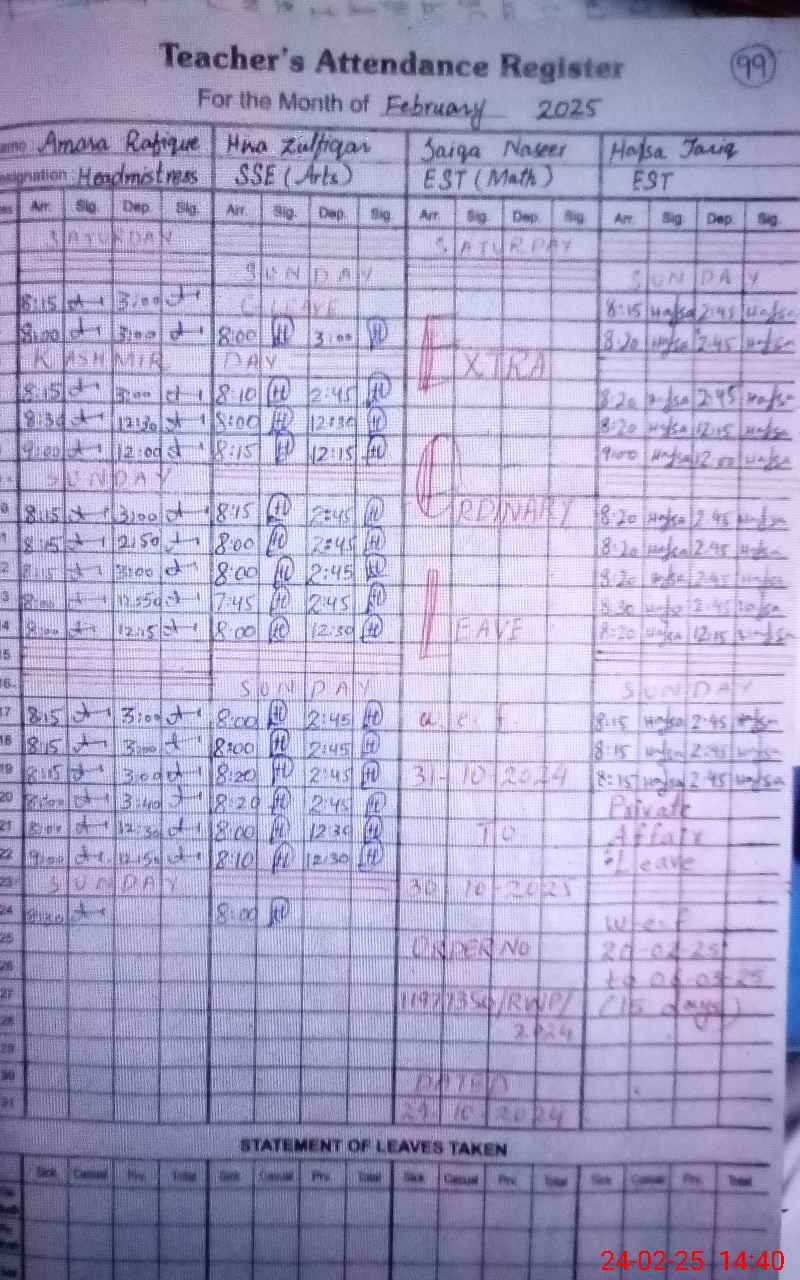 Teacher's Attendance Register
99
For the Month of February 2025
Amara Rafique Hina Zulfiqar Saiqa Naseer Hafsa Tariq
Headmistress SSE (Arts) EST (Math) EST
Arr. Sig. Dep. Sig. Arr. Sig. Dep. Sig. Arr. Sig. Dep. Sig. Arr. Sig. Dep. Sig.
SATURDAY SATURDAY
SUNDAY SUNDAY
8:15 3:00 C LEAVE 8:15 Hafsa 2:45 Hafsa
8:00 3:00 8:00 H 3:00 H 8:20 Hafsa 2:45 Hafsa
KASHMIR DAY EXTRA
8:15 3:00 8:10 H 2:45 H 8:20 Hafsa 2:45 Hafsa
8:30 12:30 8:00 H 12:30 H 8:20 Hafsa 12:15 Hafsa
9:00 12:00 8:15 H 12:15 H 9:00 Hafsa 12:00 Hafsa
SUNDAY
8:15 3:00 8:15 H 2:45 H ORDINARY 8:20 Hafsa 2:45 Hafsa
8:15 2:50 8:00 H 2:45 H 8:20 Hafsa 2:45 Hafsa
8:15 3:00 8:00 H 2:45 H 8:20 Hafsa 2:45 Hafsa
8:00 12:50 7:45 H 2:45 H 8:30 Hafsa 2:45 Hafsa
8:00 12:15 8:00 H 12:30 H LEAVE 8:20 Hafsa 12:15 Hafsa
15
16 SUNDAY SUNDAY
17 8:15 3:00 8:00 H 2:45 H w.e.f. 8:15 Hafsa 2:45 Hafsa
18 8:15 3:00 8:00 H 2:45 H 8:15 Hafsa 2:45 Hafsa
19 8:15 3:00 8:20 H 2:45 H 31-10-2024 8:15 Hafsa 2:45 Hafsa
20 8:00 3:40 8:20 H 2:45 H Private
21 8:00 12:30 8:00 H 12:30 H TO Affair
22 9:00 12:50 8:10 H 12:30 H Leave
23 SUNDAY 30-10-2025
24 8:30 8:00 H w.e.f
25 ORDER NO 20-02-25
26 to 06-03-25
27 /RWP/ (15 days)
28 2024
29
30 DATED
31 29-10-2024
STATEMENT OF LEAVES TAKEN
Sick Casual Prv. Total Sick Casual Prv. Total Sick Casual Prv. Total Sick Casual Prv. Total
24-02-25 14:40